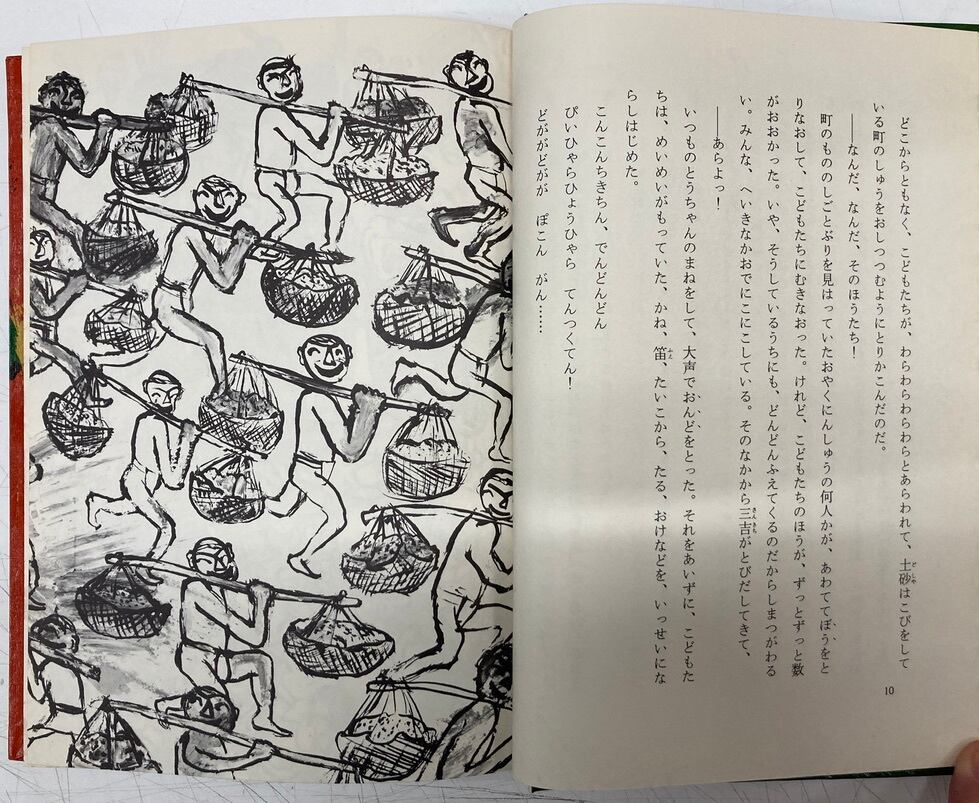 どこからともなく、こどもたちが、わらわらわらわらとあらわれて、土砂はこびをして
いる町のしゅうをおしつつむようにとりかこんだのだ。
――なんだ、なんだ、そのほうたち！
町のもののしごとぶりを見はっていたおやくにんしゅうの何人かが、あわててぼうをと
りなおして、こどもたちにむきなおった。けれど、こどもたちのほうが、ずっとずっと数
がおおかった。いや、そうしているうちにも、どんどんふえてくるのだからしまつがわる
い。みんな、へいきなかおでにこにこしている。そのなかから三吉がとびだしてきて、
――あらよっ！
いつものとうちゃんのまねをして、大声でおんどをとった。それをあいずに、こどもた
ちは、めいめいがもっていた、かね、笛、たいこから、たる、おけなどを、いっせいにな
らしはじめた。
こんこんちきちん、でんどんどん
ぴいひゃらひょうひゃら　てんつくてん！
どががどがが　ぽこん　がん……
10